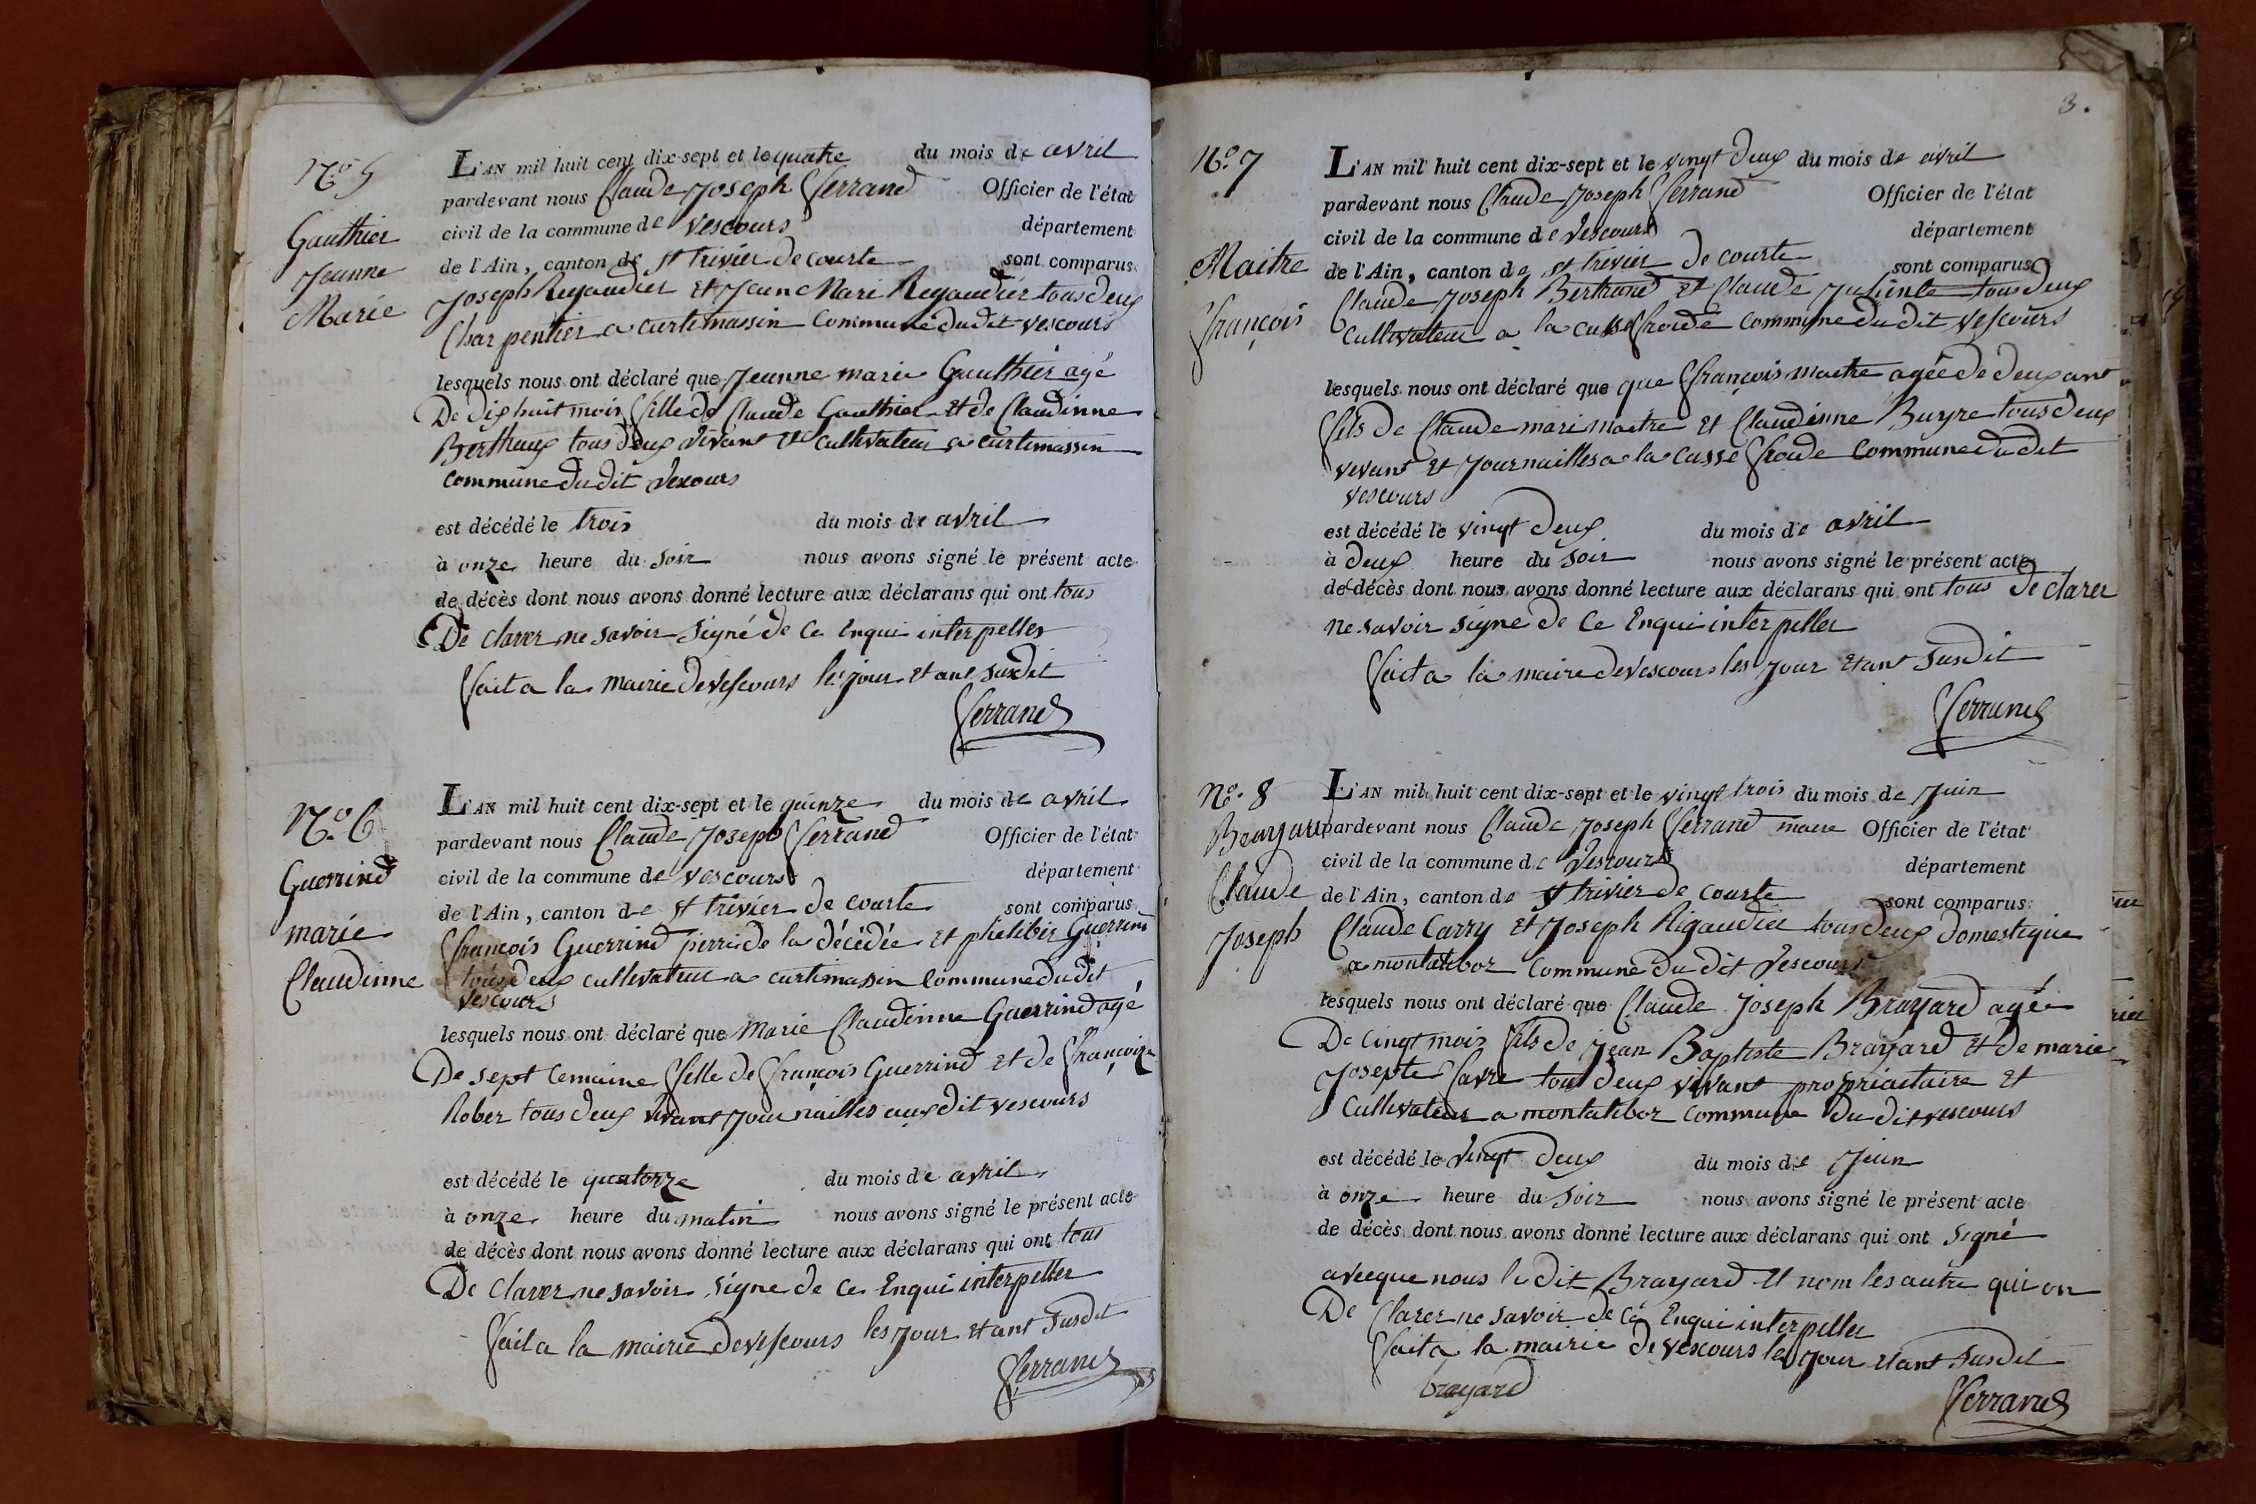 N.o 5
Gauthier
Jeanne
Marie
L'AN mil huit cent dix-sept et le quatre du mois de avril
pardevant nous Claude Joseph Ferrand Officier de l'état
civil de la commune de Vescours département
de l'Ain, canton de st trivier de courte sont comparus
Joseph Regaudier et Jean Mari Regaudier tous deux
Charpentier a curtimassin Commune dudit vescours
lesquels nous ont déclaré que Jeanne marie Gauthier agé
De dix huit mois fille de Claude Gauthier et de Claudinne
Berthaux tous deux vivant et cultivateur a curtimassin
commune du dit Vescours
est décédé le trois du mois de avril
à onze heure du soir nous avons signé le présent acte
de décès dont nous avons donné lecture aux déclarans qui ont tous
De clarer ne savoir signé de Ce Enqui interpeller
fait a la mairie de vescours les jour et ant susdit
Ferrand
N.o 6
Guerrind
marie
Claudinne
L'AN mil huit cent dix-sept et le quinze du mois de avril
pardevant nous Claude Joseph Ferrand Officier de l'état
civil de la commune de vescours département
de l'Ain, canton de st trivier de courte sont comparus
François Guerrind perre de la décédée et phelibir Guerrind
tous deux cultivateur a curtimassin Commune du dit
Vescours
lesquels nous ont déclaré que Marie Claudinne Guerrind agé
De sept Cemaine fille de François Guerrind et de Françoize
Rober tous deux vivant Journailles auxdit vescours
est décédé le quatorze du mois de avril
à onze heure du matin nous avons signé le présent acte
de décès dont nous avons donné lecture aux déclarans qui ont tous
De Clarer ne savoir signe de Ce Enqui interpeller
fait a la mairie de vescours les jour et ant susdit
Ferrand
3.
N.o 7
Maitre
François
L'AN mil huit cent dix-sept et le vingt deux du mois de avril
pardevant nous Claude Joseph Ferrand Officier de l'état
civil de la commune de Vescours département
de l'Ain, canton de st trivier de courte sont comparus
Claude Joseph Bertrand et Claude tous deux
Cultivateur a la Casse froide commune du dit vescours
lesquels nous ont déclaré que que François maitre agée de deux ant
fils de Claude mari maitre et Claudinne Buyre tous deux
vivant et Journailles a la Casse froide Commune du dit
vescours
est décédé le vingt deux du mois de avril
à deux heure du soir nous avons signé le présent acte
de décès dont nous avons donné lecture aux déclarans qui ont tous De clarer
ne savoir signe de Ce Enqui interpeller
fait a la maire de vescours les jour et ant susdit
Ferrand
N.o 8
Brayard
Claude
Joseph
L'AN mil huit cent dix-sept et le vingt trois du mois de Juin
pardevant nous Claude Joseph Ferrand maire Officier de l'état
civil de la commune de Vescours département
de l'Ain, canton de st trivier de courte sont comparus
Claude Carry et Joseph Rigaudier tous deux domestique
a montalibor commune du dit Vescours
lesquels nous ont déclaré que Claude Joseph Brayard agée
De Cinqt mois fils de Jean Baptiste Brayard et de marie
Josepte favre tous deux vivant propriaitaire et
Cultivateur a montalibor commune du dit vescours
est décédé le vingt deux du mois de Juin
à onze heure du soir nous avons signé le présent acte
de décès dont nous avons donné lecture aux déclarans qui ont signé
avecque nous le dit Brayard et nom les autre qui on
De Clarer ne savoir de Ce Enqui interpeller
fait a la mairie de vescours les jour et ant susdit
brayard
Ferrand